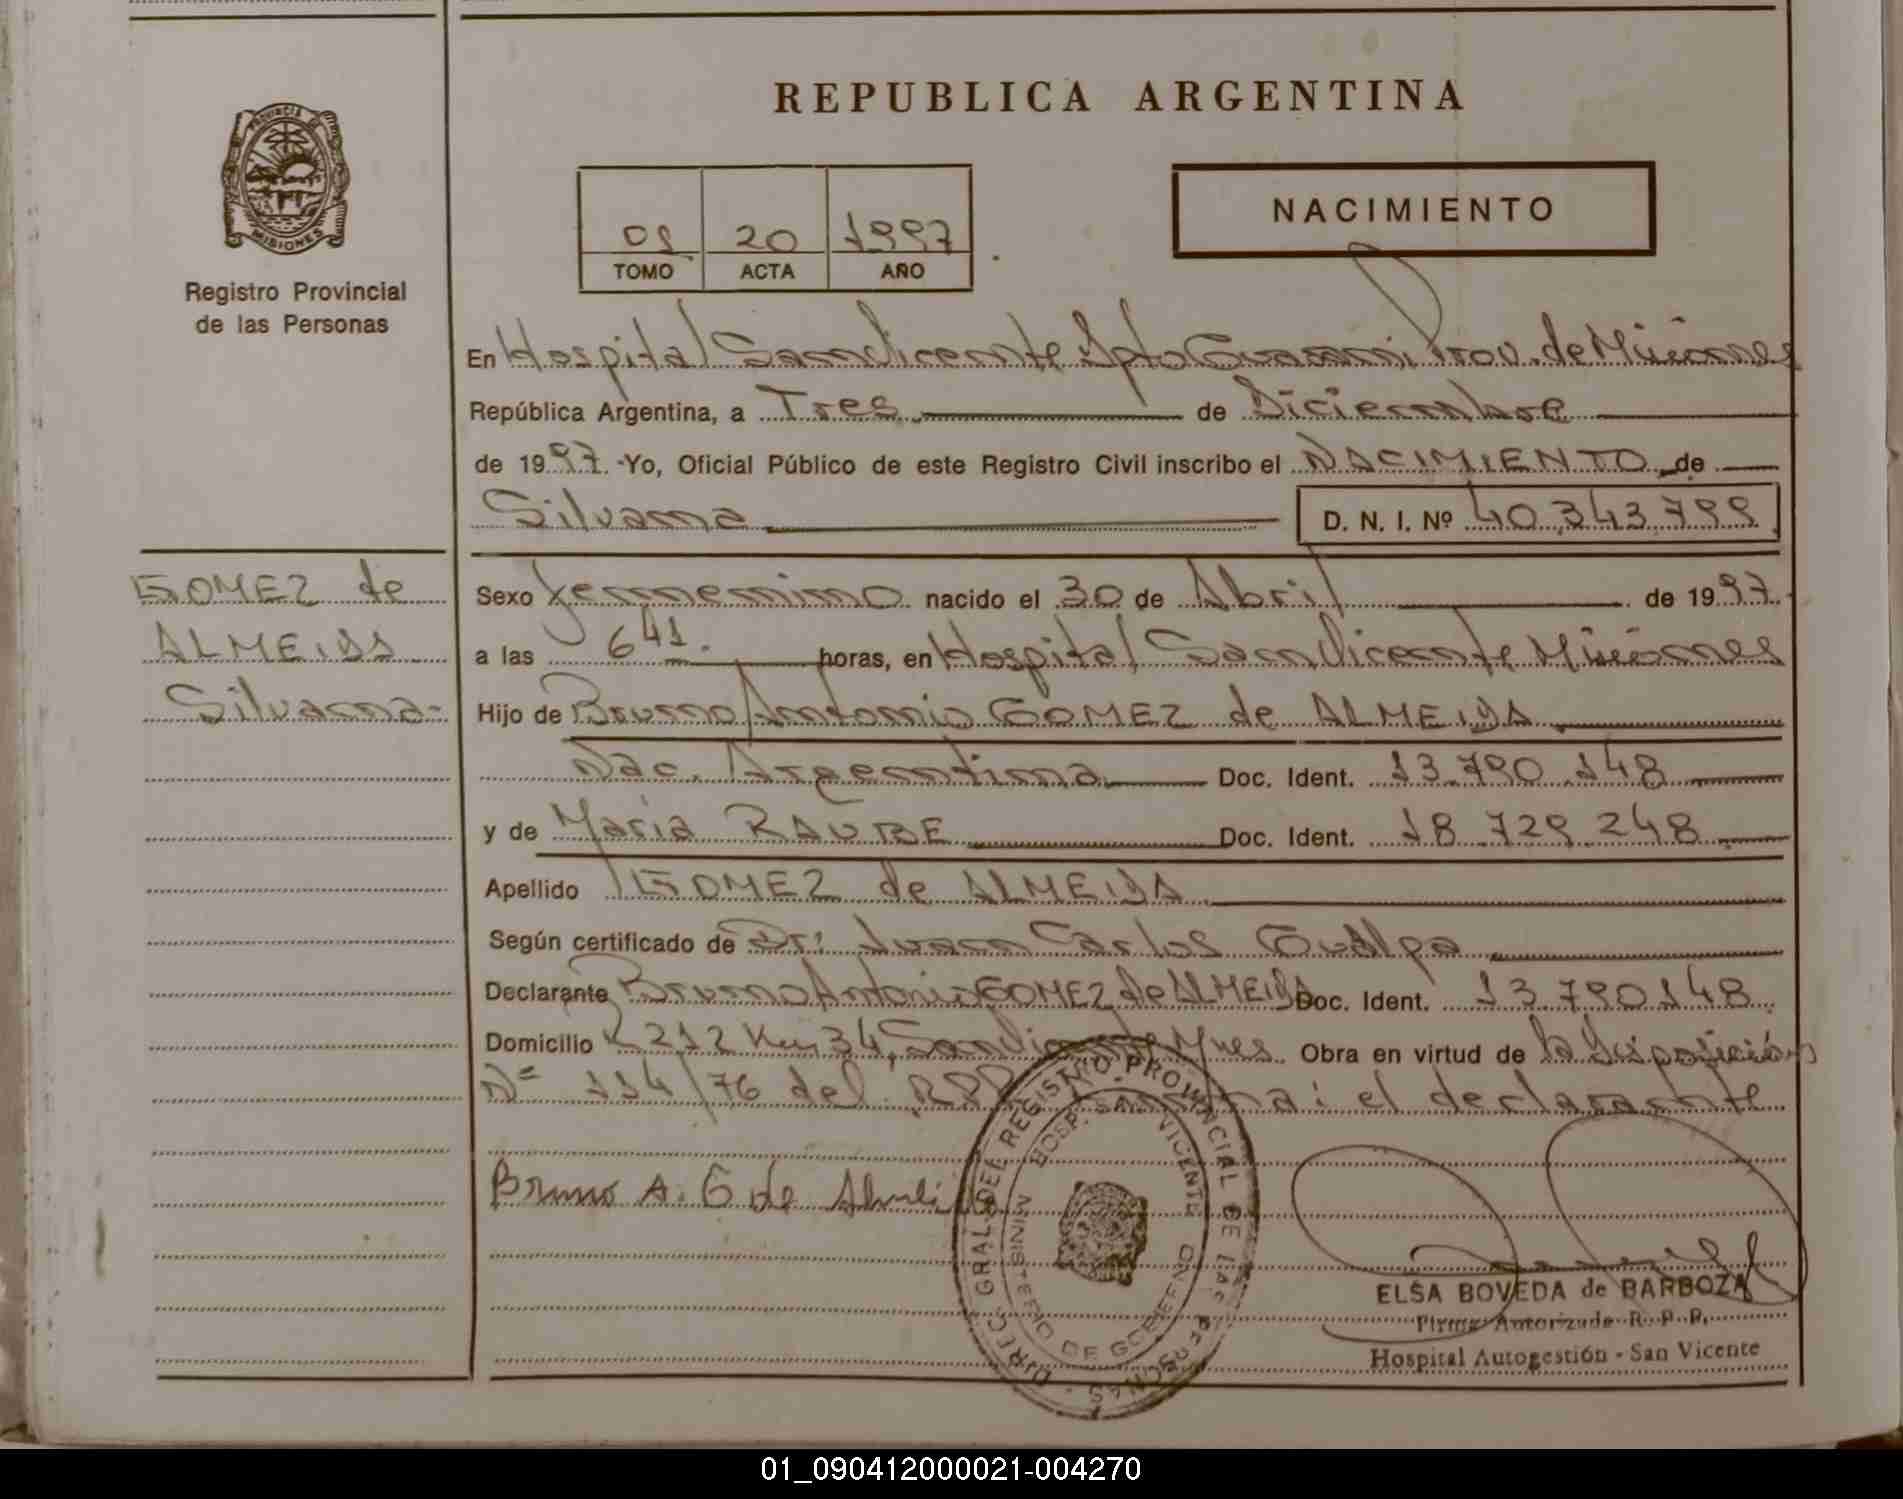 REPUBLICA ARGENTINA
PROVINCIA DE
MISIONES
Registro Provincial
de las Personas
20 1997
TOMO ACTA AÑO
NACIMIENTO
En Hospital San Vicente Dpto Guarani Prov. de Misiones
República Argentina, a Tres de Diciembre
de 1997 -Yo, Oficial Público de este Registro Civil inscribo el NACIMIENTO de
Silvana D. N. I. Nº 40.343.799
GOMEZ de
ALMEIDA
Silvana-
Sexo femenino nacido el 30 de Abril de 1997.
a las 6 41. horas, en Hospital San Vicente Misiones
Hijo de Bruno Antonio GOMEZ de ALMEIDA
Nac. Argentina Doc. Ident. 13.790.148
y de Maria RAUBE Doc. Ident. 18.729.248
Apellido GOMEZ de ALMEIDA
Según certificado de Dr: Juan Carlos Gualpa
Declarante Bruno Antonio GOMEZ de ALMEIDA Doc. Ident. 13.790.148
Domicilio 212 Km 34, San Vicente Mnes Obra en virtud de la Disposición
Nº 114/76 del RPP : el declarante
Bruno A. G de Almeida
DIREC. GRAL. DEL REGISTRO PROVINCIAL DE LAS PERSONAS
HOSP. SAN VICENTE
MINISTERIO DE GOBIERNO
ELSA BOVEDA de BARBOZA
Firma Autorizada R. P. P.
Hospital Autogestión - San Vicente
01_090412000021-004270